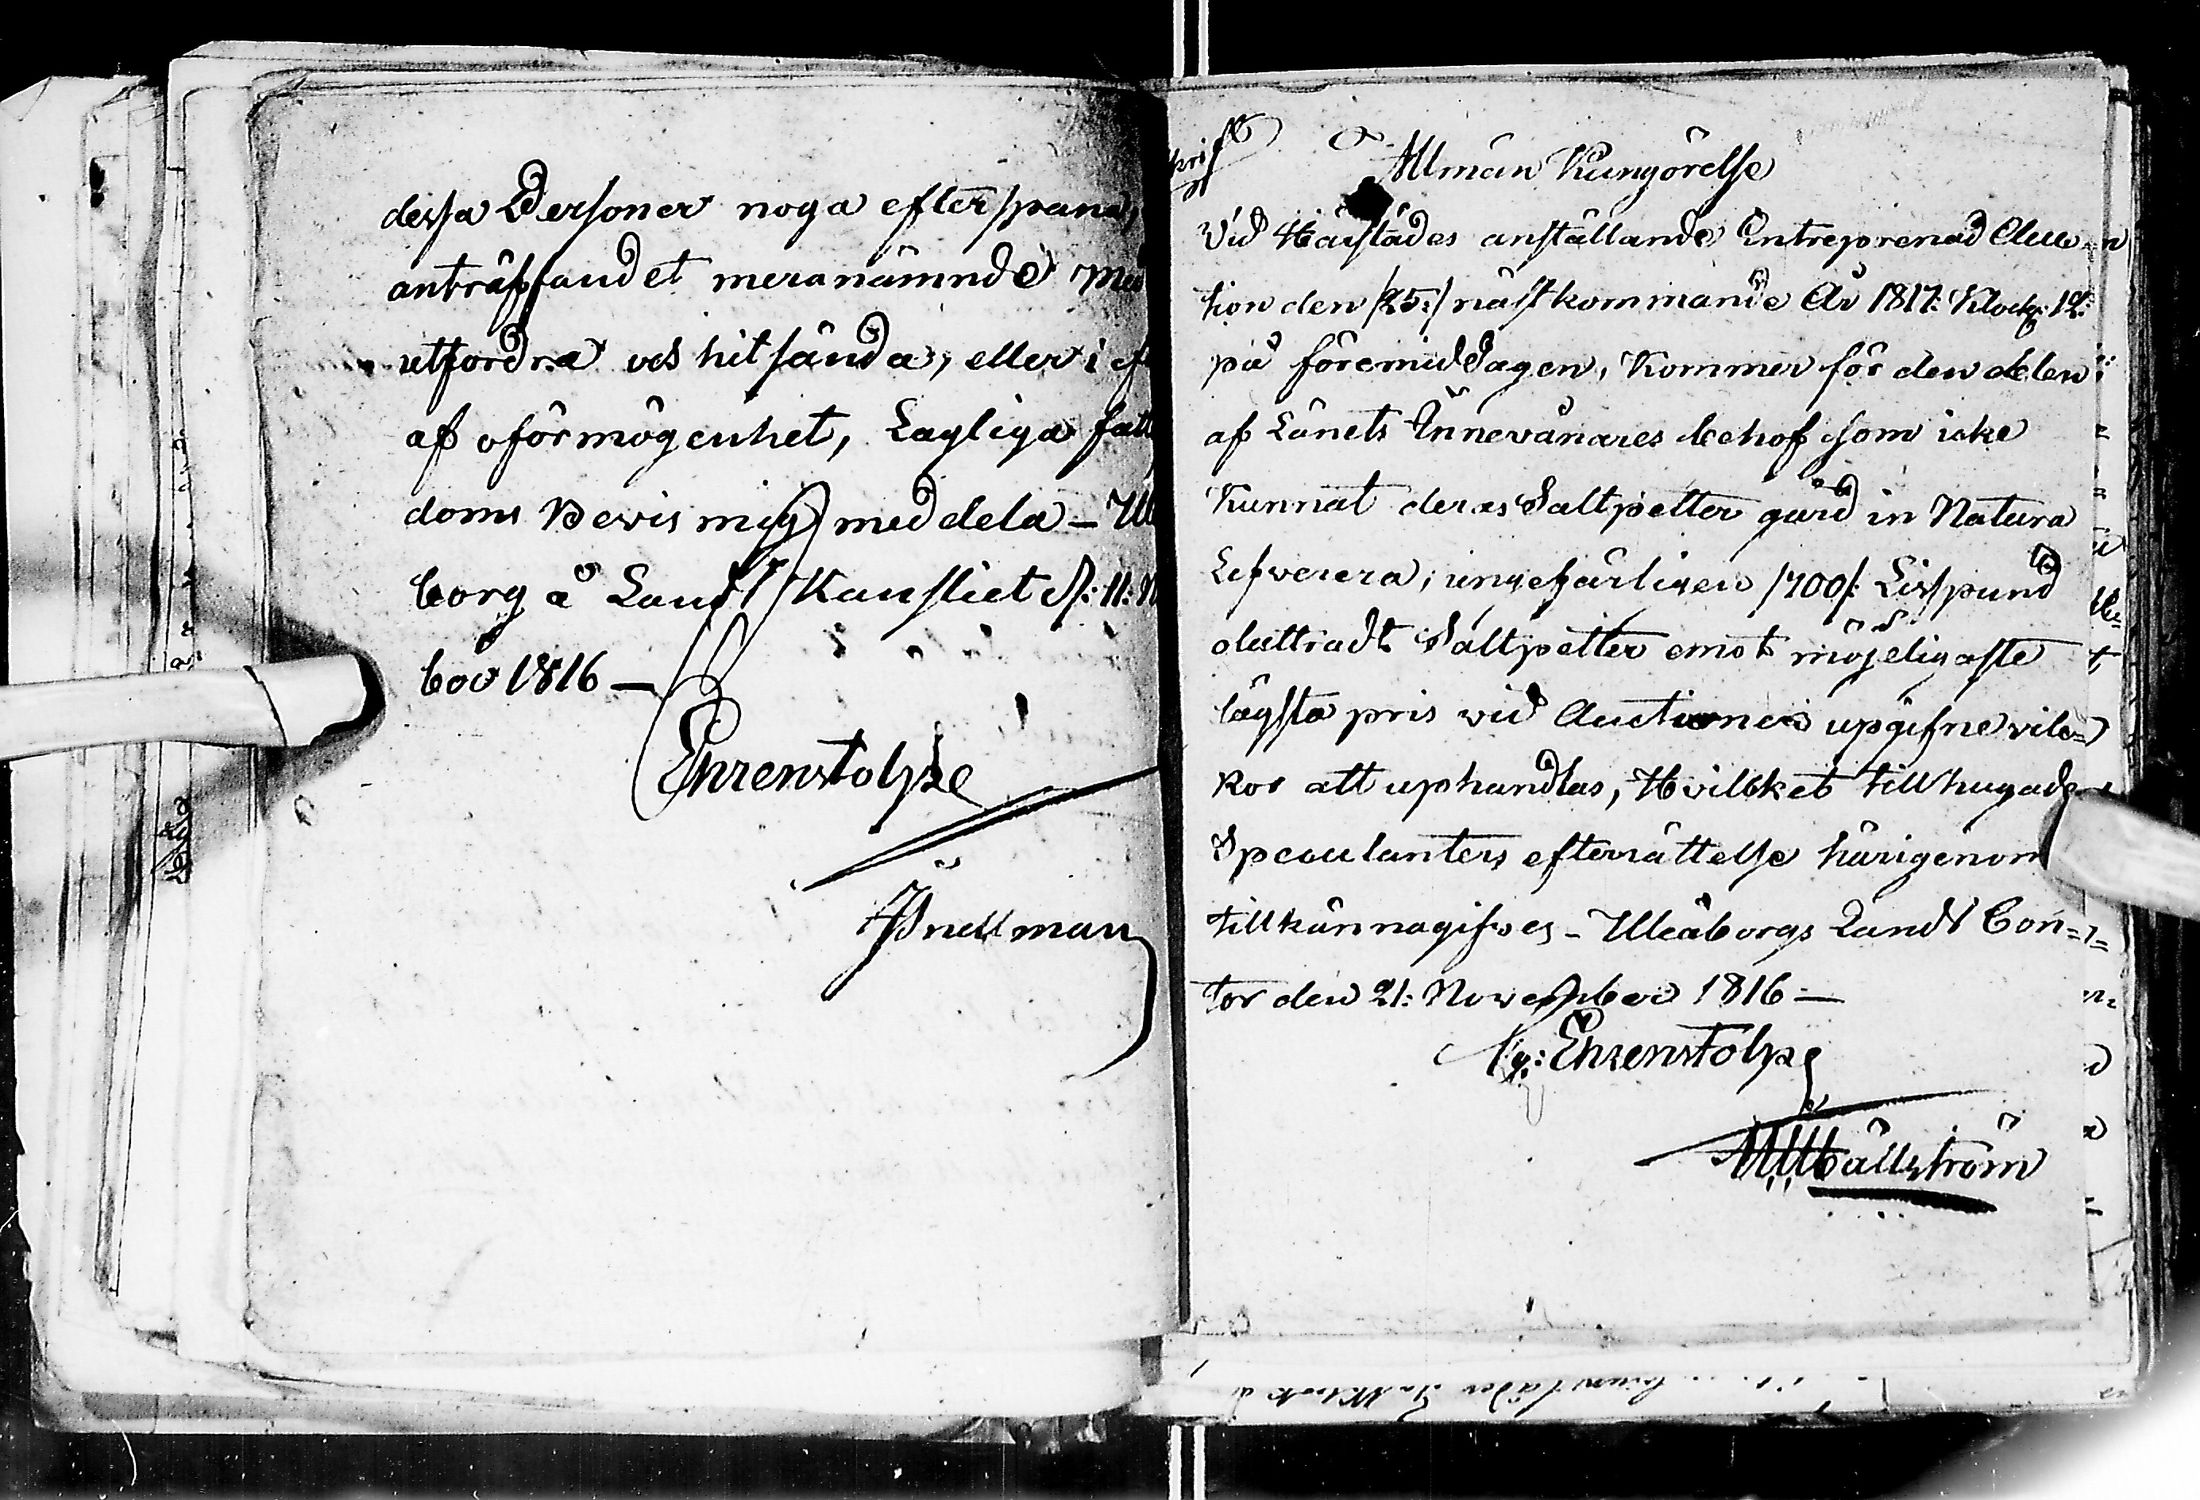 dessa Personer noga efterspana,
anträffandet meranämnde
utfordra och hitsända, eller i
af oförmögenhet, Lagliga
doms Bewis mig meddela –
borg å Lands Kansliet d: 11:
ber 1816 –
Ehrenstolpe
Snellman
Allmän Kungörelse
Vid Härstädes anställande Entreprenad Auc
tion den /25:/ nästkommande År 1817: Klock: 12:
på föremiddagen, Kommer för den delen
af Länets Innevånares behof som icke
Kunnat deras Saltpetter gärd in Natura
Lefverera, ungefärligen /700/: Lispund
oluttradt Saltpetter emot möjeligaste
lägsta pris wid Auctionen upgifne vil=
kor att uphandlas, Hvilket till hugade
Speculanters efterrättelse härigenom
tillkännagifves – Uleåborgs Lands Con=
tor den 21: November 1816 –
Ehrenstolpe
Hällström